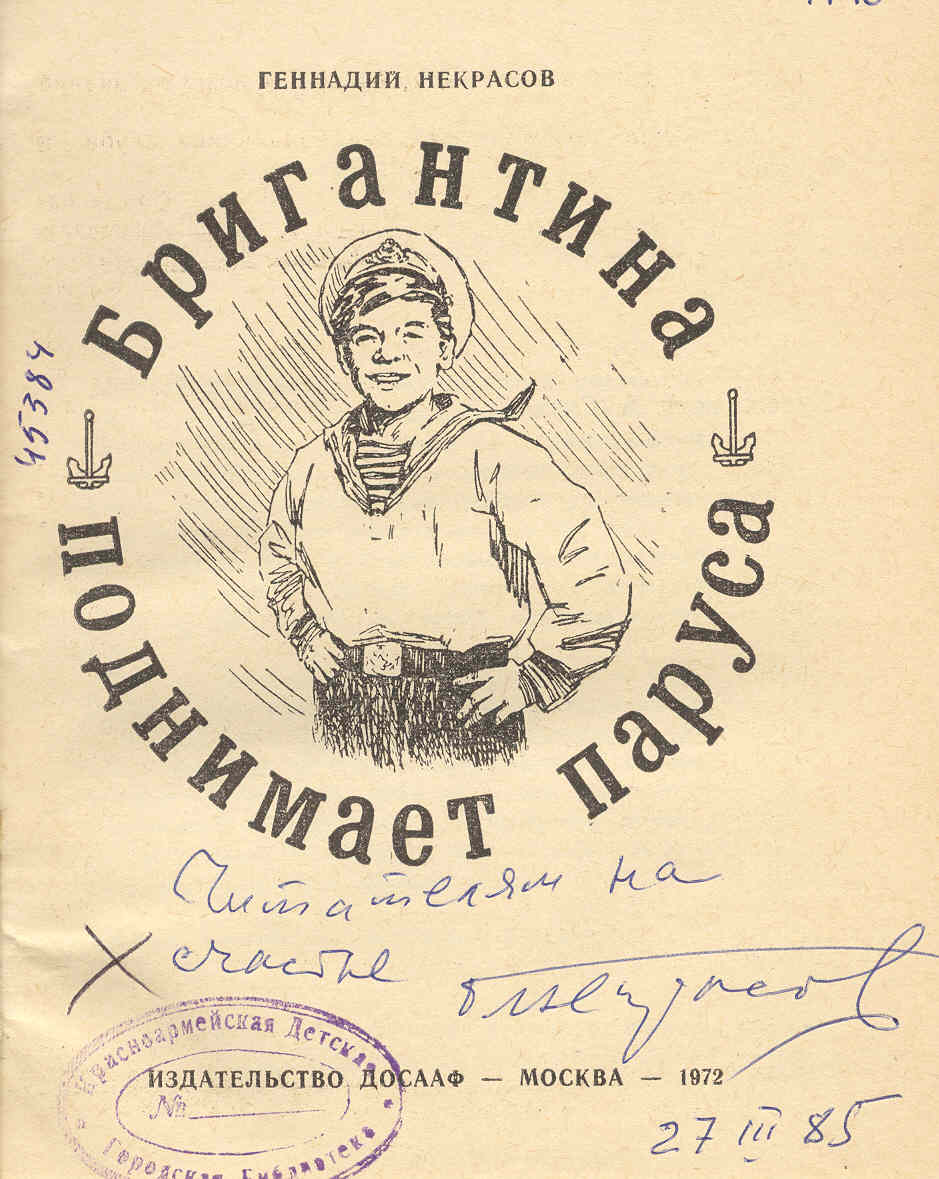 ГЕННАДИЙ НЕКРАСОВ
Бригантина
поднимает паруса
45384
Читателям на
счастье
27 III 85
Красноармейская Детская
ИЗДАТЕЛЬСТВО ДОСААФ — МОСКВА — 1972
№
Городская Библиотека